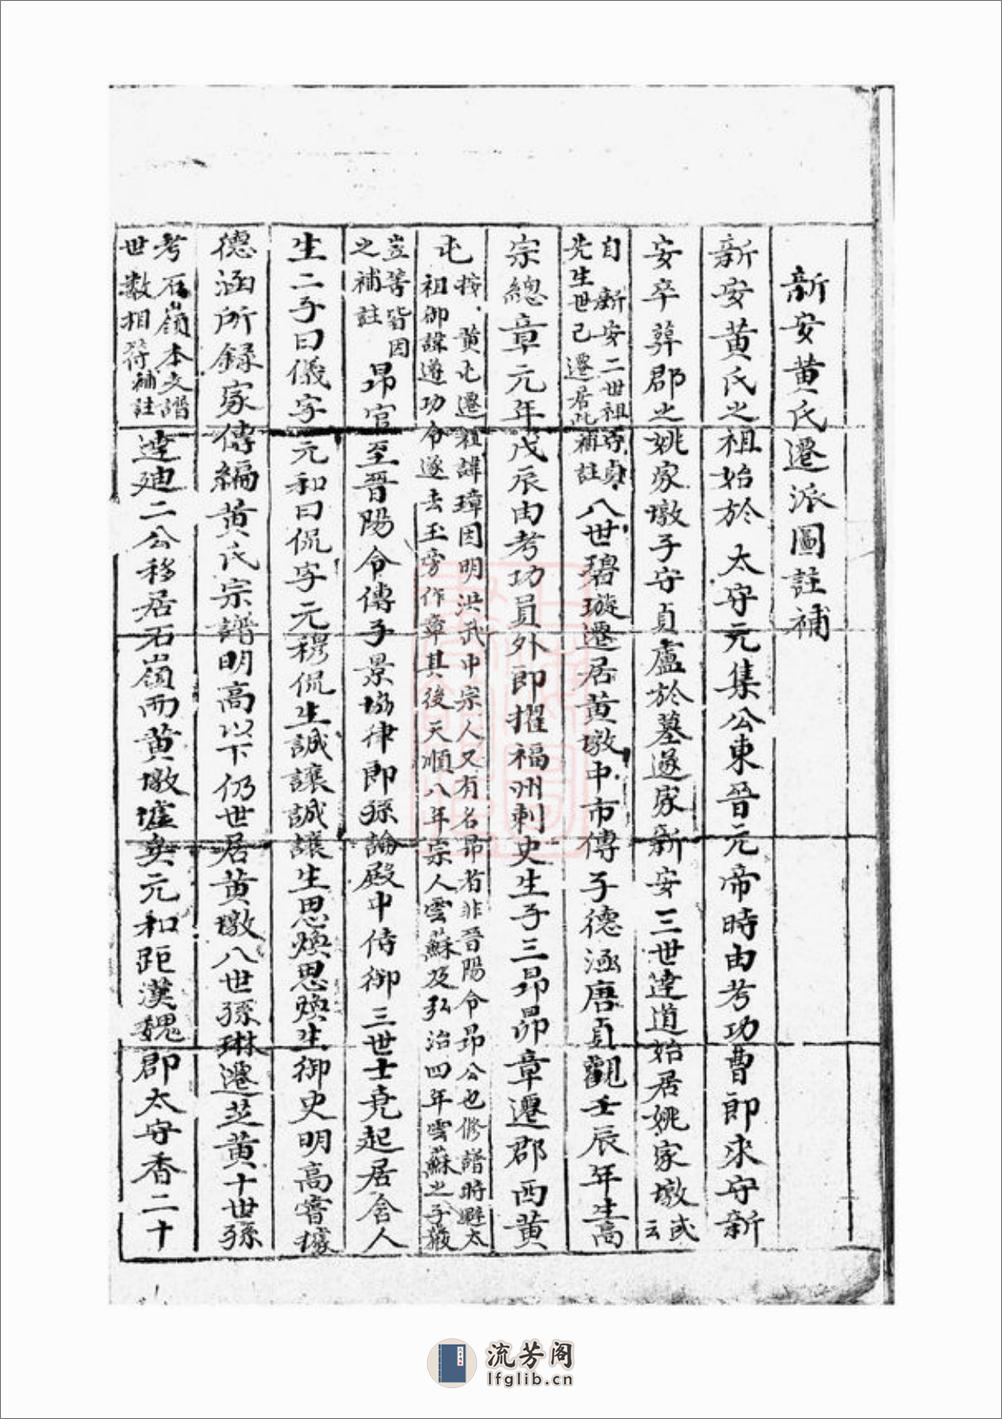 新安黄氏遷派圖註補
新安黄氏之祖始於太守元集公東晉元帝時由考功曹郎來守新
安卒葬郡之姚家墩子守貞廬於墓遂家新安三世達道始居姚家墩或云
自新安二世祖守貞先生世已遷居此補註八世碧璇遷居黄墩中市傳子德涵唐貞觀壬辰年生高
宗總章元年戊辰由考功員外郎擢福州刺史生子三昂昴章遷郡西黄
屯按黄屯遷祖諱璋因明洪武中宗人又有名昂者非晉陽令昂公也修譜時避太
祖御諱遵功令遂去玉旁作章其後天順八年宗人雲蘇及弘治四年雲蘇之子
豈等皆因之補註昂官至晉陽令傳子景協律郎孫論殿中侍御三世士堯起居舍人
生二子曰儀字元和曰侃字元穆侃生誠讓誠讓生思煥思煥生御史明高嘗據
德涵所録家傳編黄氏宗譜明高以下仍世居黄墩八世孫琳遷芝黄十世孫
考石嶺本文譜世數相符補註達廸二公移居石嶺而黄墩墟矣元和距漢魏郡太守香二十
流芳阁
lfglib.cn